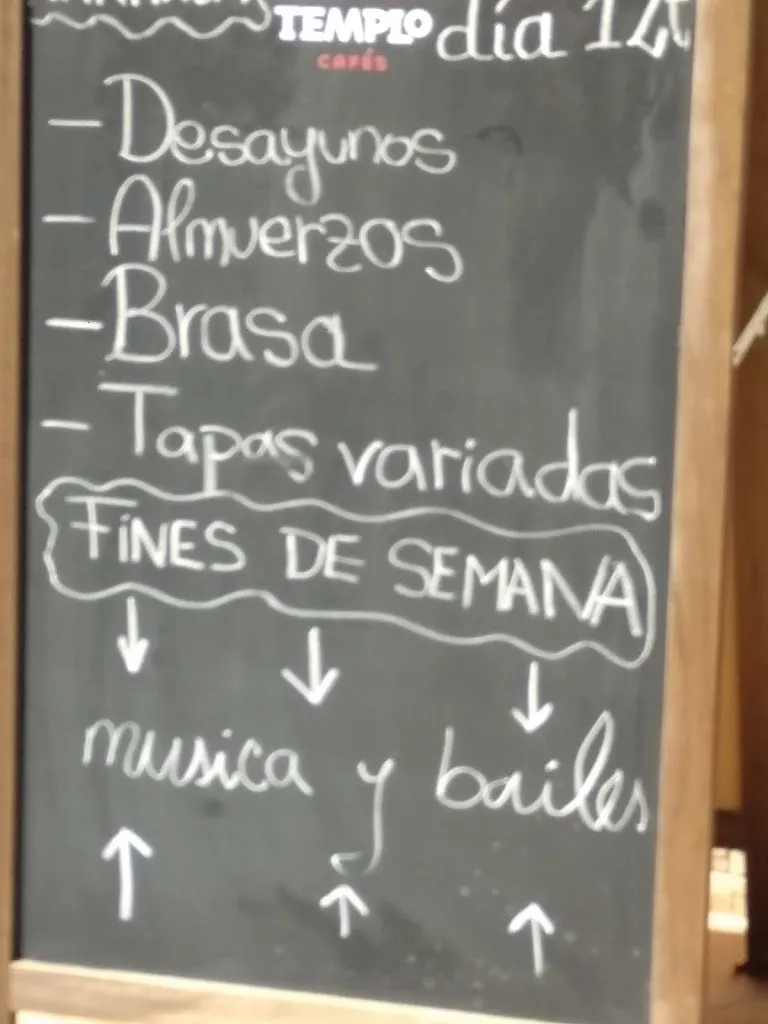 TEMPLO día 14
CAFÉS
- Desayunos
- Almuerzos
- Brasa
- Tapas variadas
FINES DE SEMANA
musica y bailes